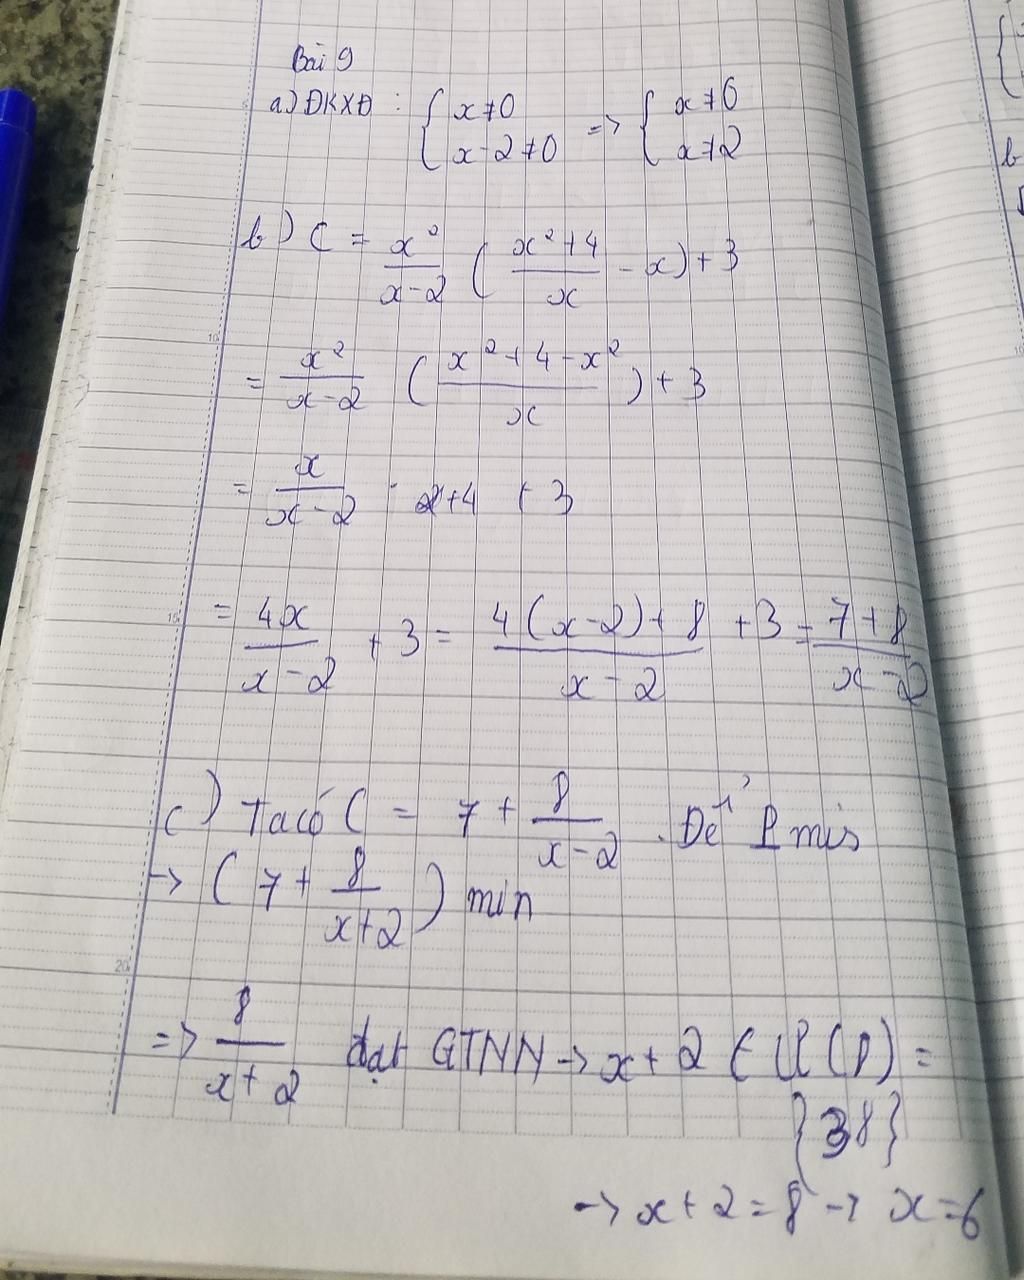 Bài 9
a) ĐKXĐ : { x ≠ 0 x - 2 ≠ 0 => { x ≠ 0 x ≠ 2
b) C = x²/(x-2) ( (x²+4)/x - x) + 3
= x²/(x-2) ( (x²+4-x²)/x ) + 3
= x/(x-2) · +4 + 3
= 4x/(x-2) + 3 = (4(x-2)+8)/(x-2) + 3 = (7+8)/(x-2)
c) Ta có C = 7 + 8/(x-2) . Để P min
-> ( 7 + 8/(x+2) ) min
=> 8/(x+2) đạt GTNN -> x + 2 ∈ Ư(8) =
{ 8}
-> x + 2 = 8 -> x = 6